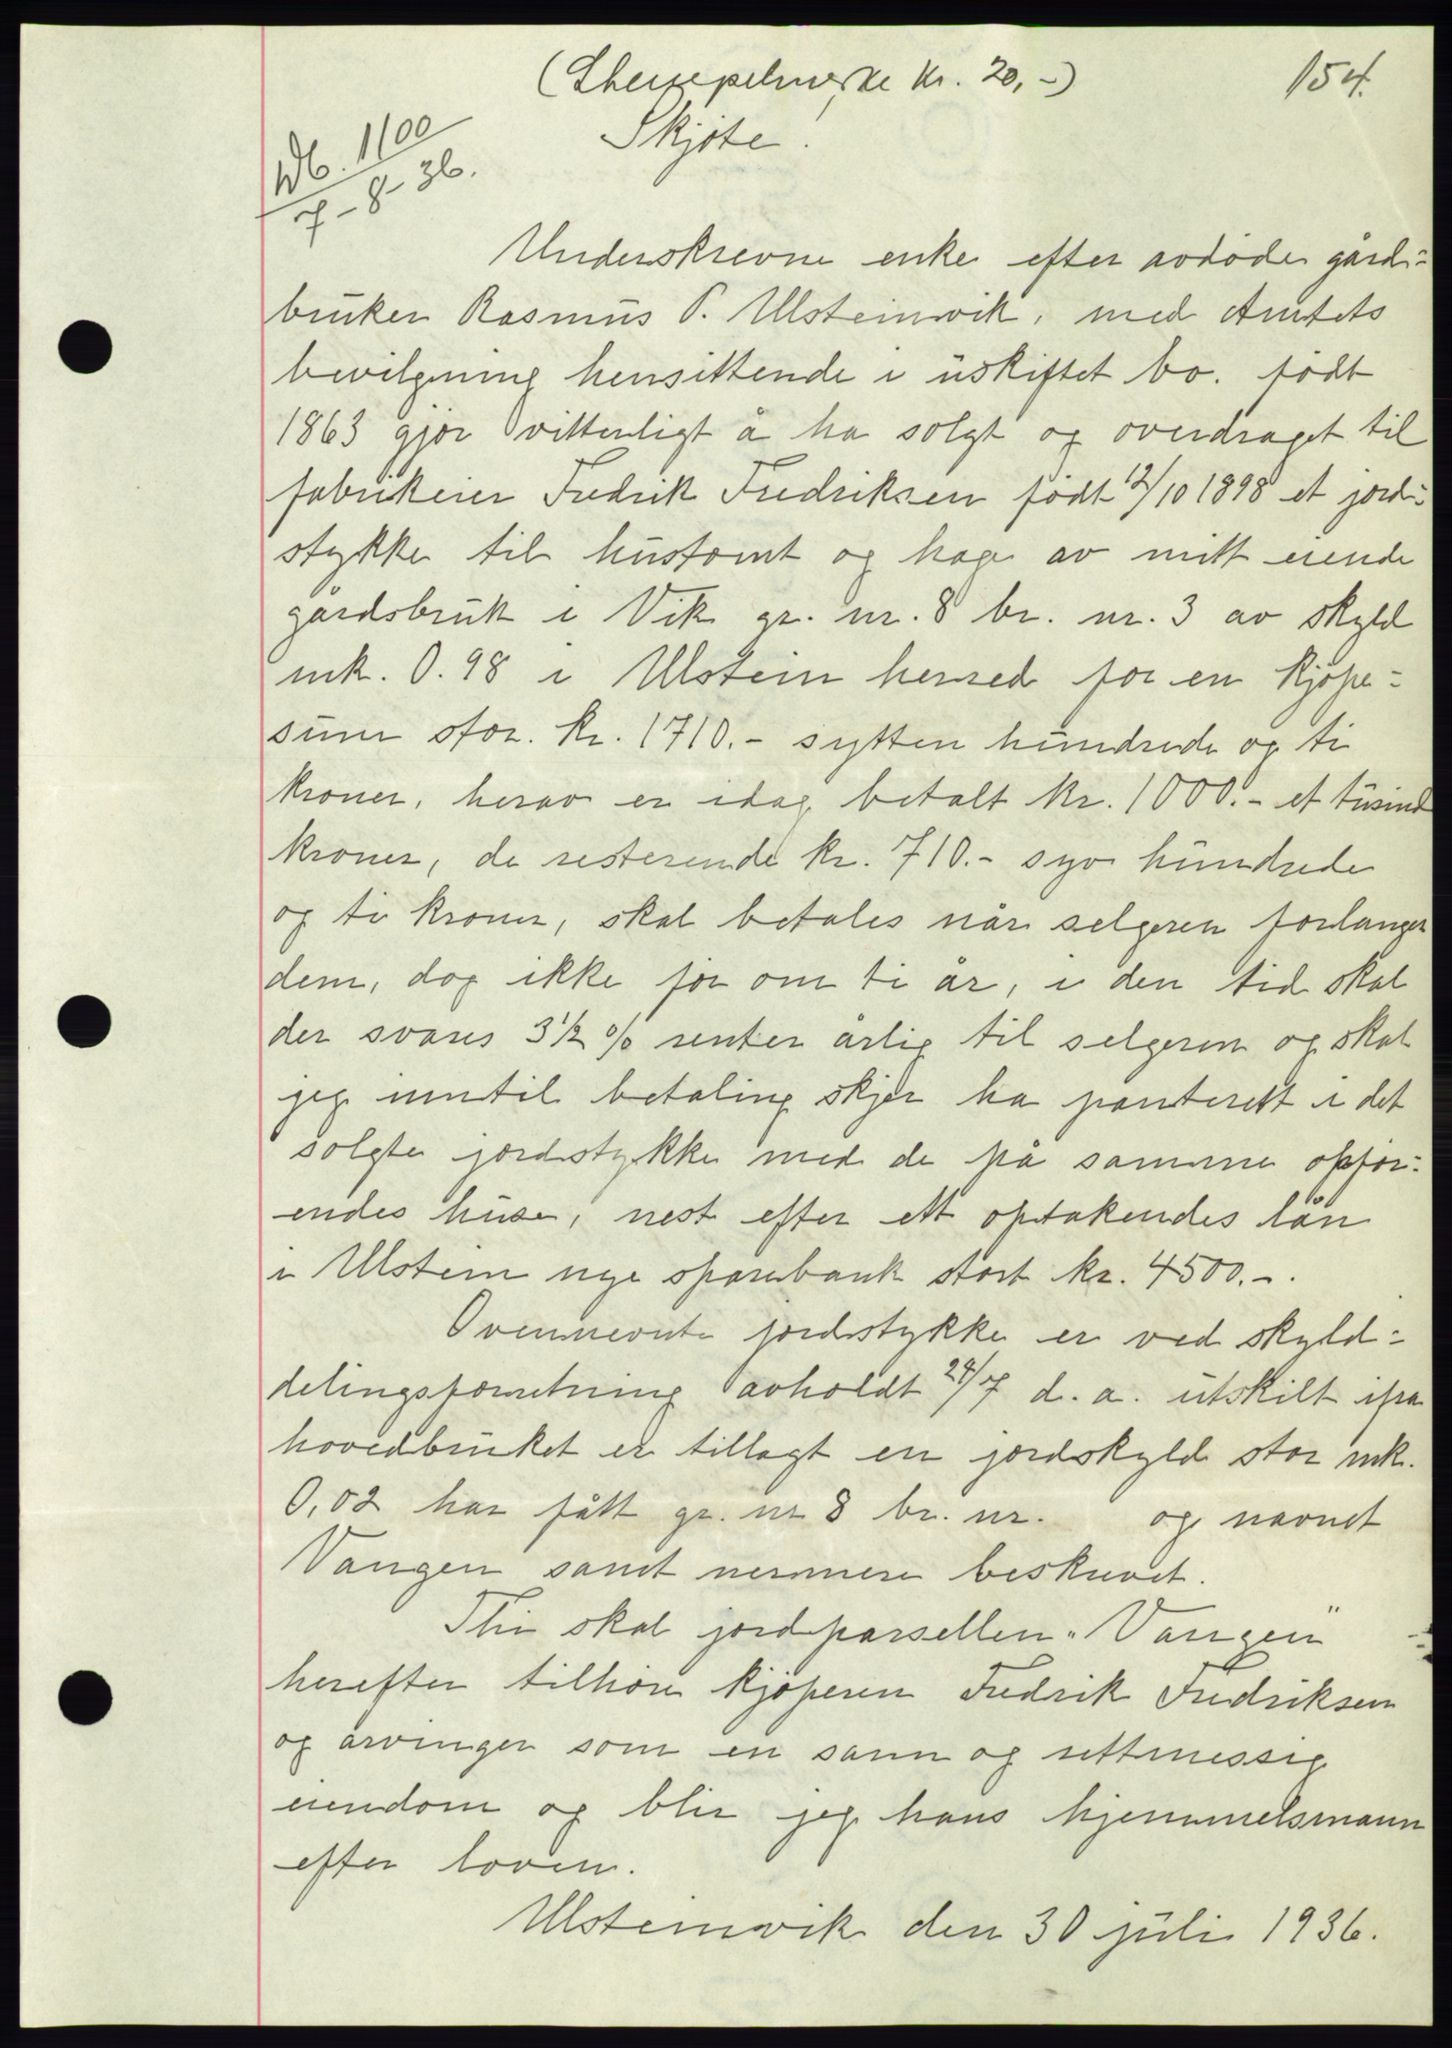 (Stempelmerke kr. 20,-)
154.
Skjøte!
Db. 1100
7-8-36.
Underskrevne enke efter avdøde gård-
bruker Rasmus P. Ulsteinvik, med Amtets
bevilgning hensittende i uskiftet bo. født
1863 gjør vitterligt å ha solgt og overdraget til
fabrikeier Fredrik Fredriksen født 12/10 1898 et jord-
stykke til hustomt og hage av mitt eiende
gårdsbruk i Vik gr. nr. 8 br. nr. 3 av skyld
mk. 0.98 i Ulstein herred for en kjøpe-
sum stor. kr. 1710.- sytten hundrede og ti
kroner, herav er idag betalt kr. 1000.- et tusind
kroner, de resterende kr. 710.- syv hundrede
og ti kroner, skal betales når selgeren forlanger
dem, dog ikke før om ti år, i den tid skal
der svares 3½ % renter årlig til selgeren og skal
jeg inntil betaling skjer ha panterett i det
solgte jordstykke med de på samme opfør-
endes huse, nest efter ett optakendes lån
i Ulstein nye sparebank stort kr. 4500.-.
Ovennevnte jordstykke er ved skyld-
delingsforretning avholdt 24/7 d. a. utskilt ifra
hovedbruket er tillagt en jordskyld stor mk.
0,02 har fått gr. nr 8 br. nr. og navnet
Vangen samt nermere beskrevet.
Thi skal jordparsellen "Vangen"
herefter tilhøre kjøperen Fredrik Fredriksen
og arvinger som en sann og rettmessig
eiendom og blir jeg hans hjemmelsmann
efter loven.
Ulsteinvik den 30 juli 1936.